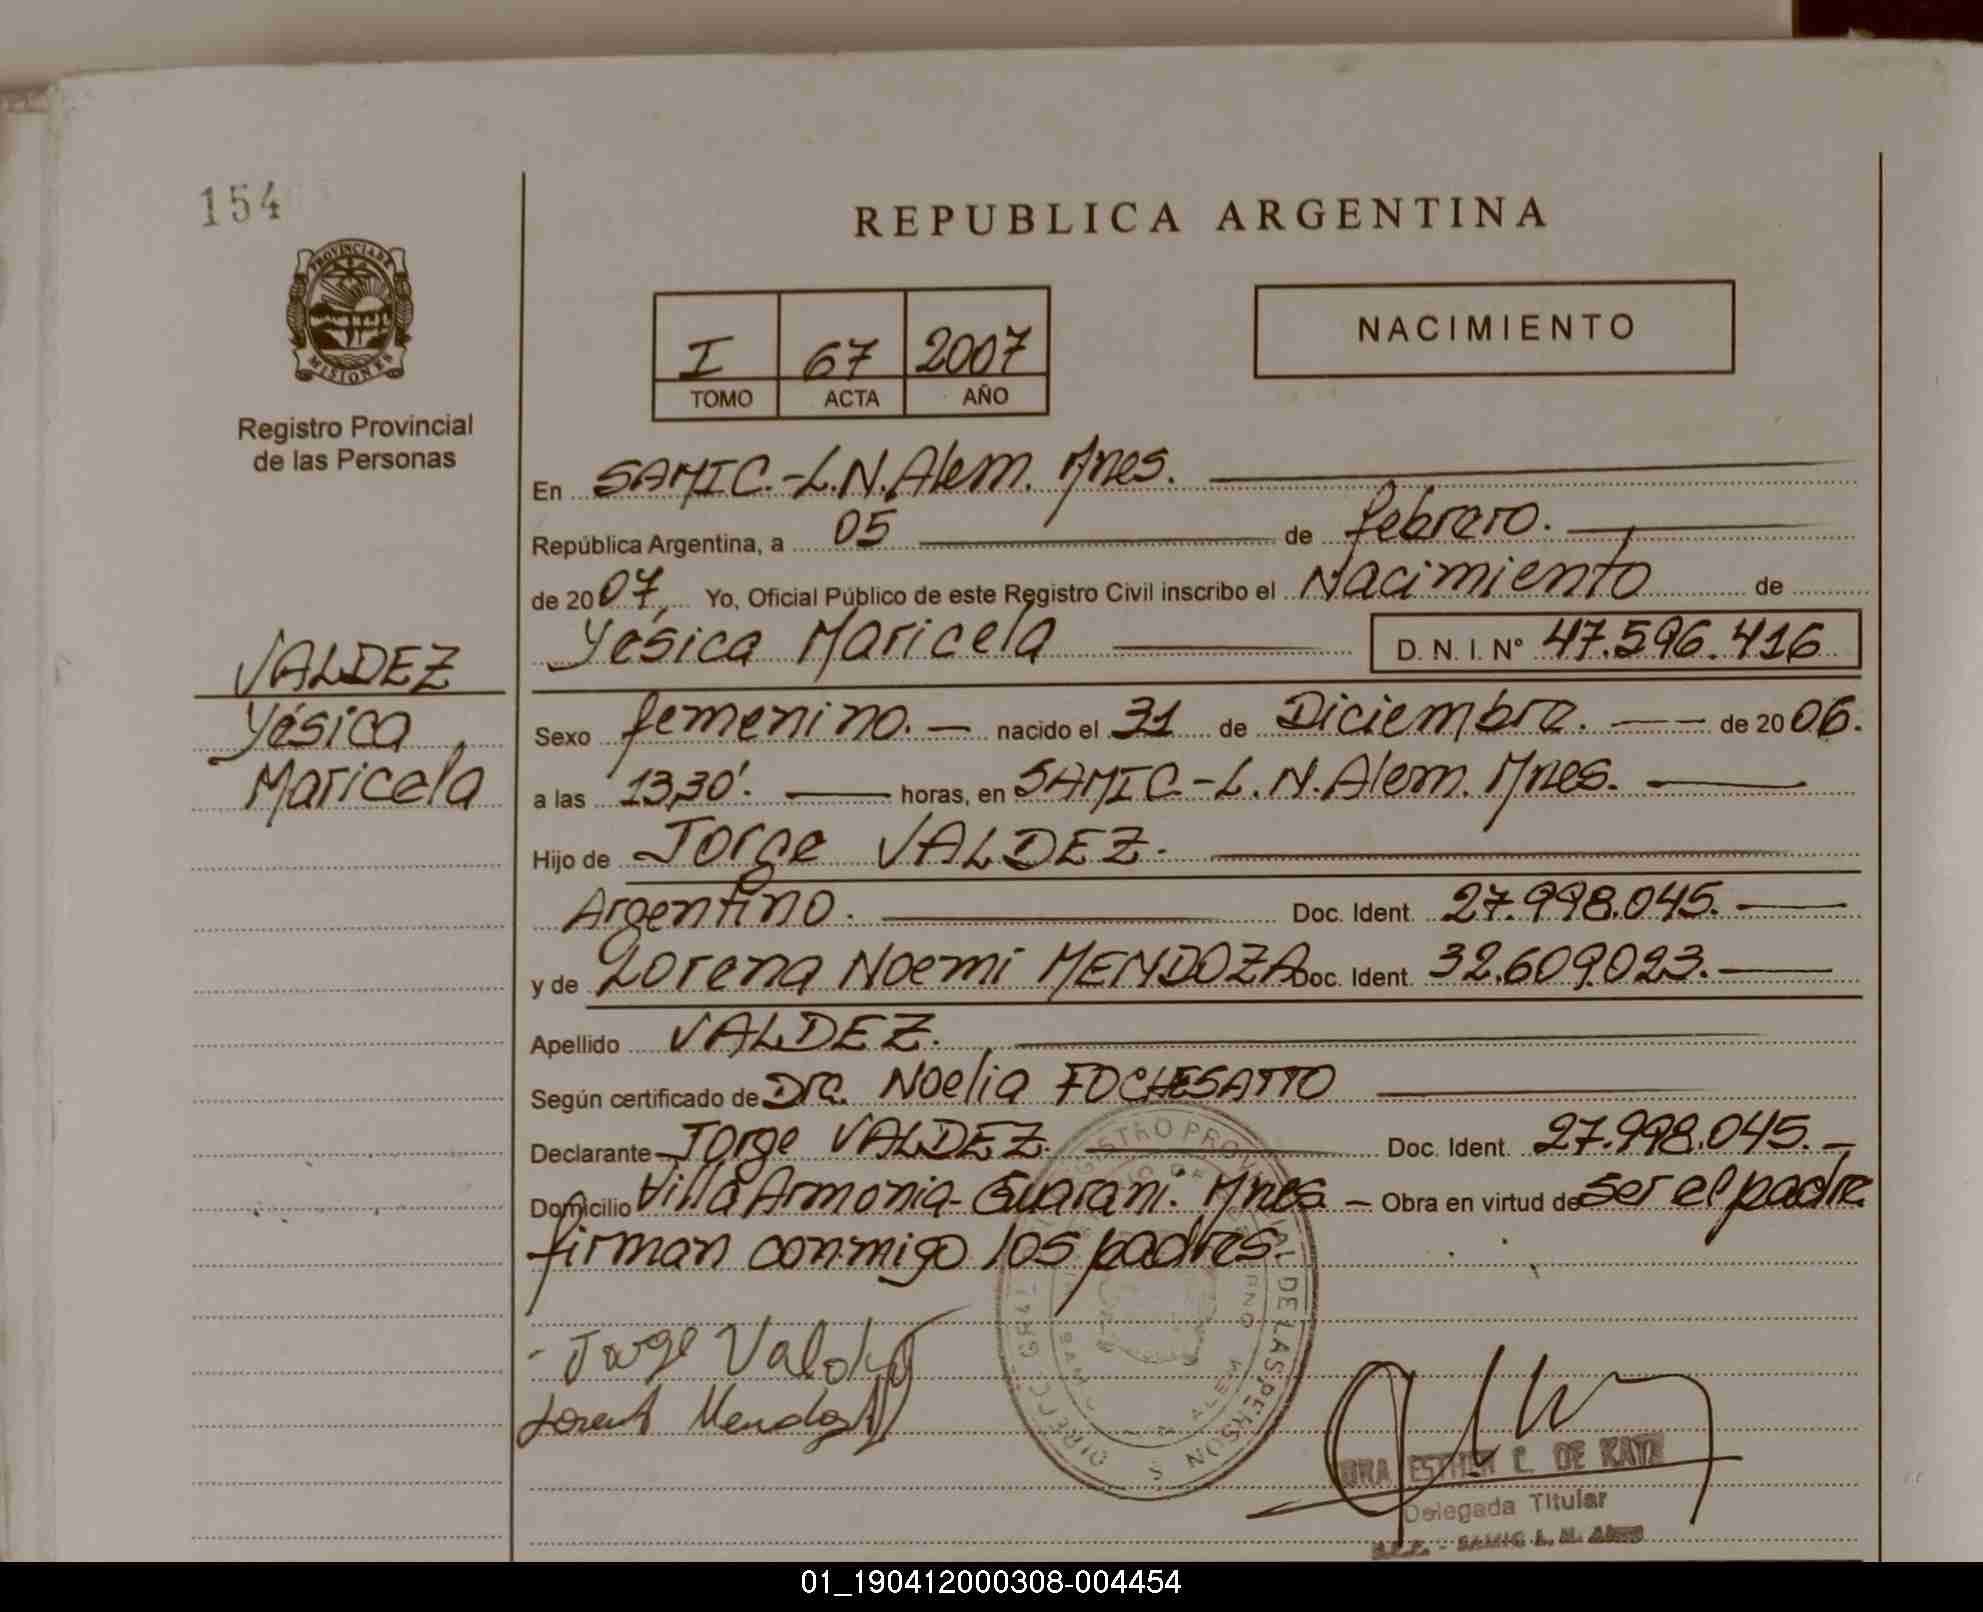 154
REPUBLICA ARGENTINA
PROVINCIA DE
MISIONES
I 67 2007
TOMO ACTA AÑO
NACIMIENTO
Registro Provincial
de las Personas
En SAMIC.-L.N.Alem. Mnes.
República Argentina, a 05 de febrero.
de 2007, Yo, Oficial Público de este Registro Civil inscribo el Nacimiento de
Yésica Maricela D. N. I. Nº 47.596.416
VALDEZ
Yésica
Maricela
Sexo femenino. nacido el 31 de Diciembre. de 2006.
a las 13,30'. horas, en SAMIC-L.N.Alem. Mnes.
Hijo de Jorge VALDEZ.
Argentino. Doc. Ident. 27.998.045.
y de Lorena Noemi MENDOZA Doc. Ident. 32.609.023.
Apellido VALDEZ.
Según certificado de Dra. Noelia FOCHESATTO
Declarante Jorge VALDEZ. Doc. Ident. 27.998.045.
Domicilio Villa Armonia-Guarani. Mnes. Obra en virtud de ser el padre
firman conmigo los padres.
Jorge Valdez
Lorena Mendoza
DIRECC. GRAL. REGISTRO PROVINCIAL DE LAS PERSONAS
ESTHER C. DE KATZ
Delegada Titular
SAMIC L. N. Alem
01_190412000308-004454